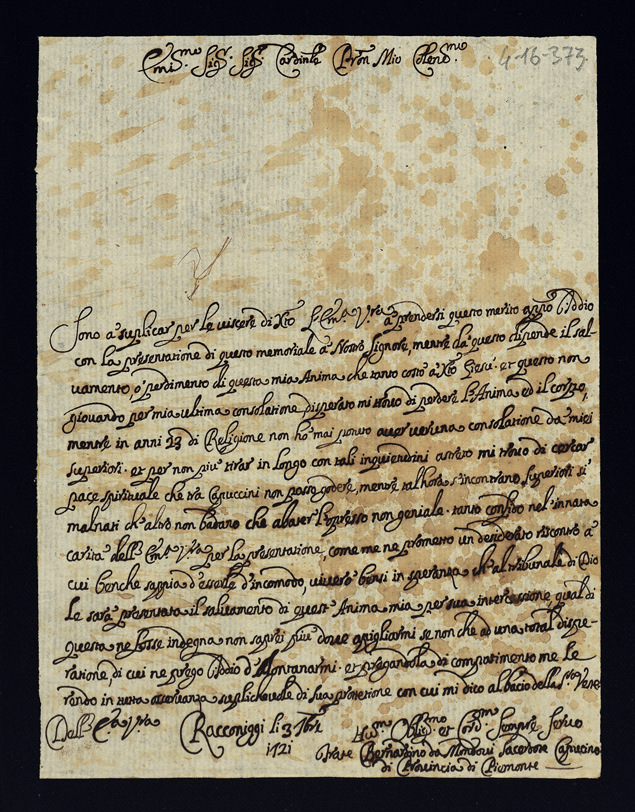 Em.mo Sig.r Sig.r Cardinle Pron Mio Colend.mo
4-16-373
Sono a suplicar per le uiscere di Xto l'Em.a V.ra a prendersi questo merito apo Iddio
con la presentatione di questo memoriale a Nostro Signore, mentre da questo dipende il sal-
uamento, o perdimento di questa mia Anima che tanto costo a Xto Giesu. et questo non
giouando per mia ultima consolatione, disperato mi trouo di perdere l'Anima ed il corpo,
mentre in anni 23 di Religione non ho mai potuto auer ueruna consolatione da miei
superiori. et per non piu tirar in longo con tali inquiendini astreto mi trouo di cercar
pace spirituale che tra Capuccini non posso godere, mentre talhora s'incontrano superiori si
malnati ch'altro non badano che abater l'opresso non geniale. tanto confido nel'innata
carita dell' Em.a V.ra per la presentatione, come me ne prometto un desiderato riscontro a
cui benche sappia d'esserle d'incomodo, uiuero bensi in speranza ch'al tribunale di Dio
le sara presentata il saluamento di quest'Anima mia per sua intercessione, qual di
questa ne fosse indegna non saprei piu doue apigliarmi se non che ad una total dispe-
ratione, di cui ne prego Iddio d'alontanarmi. et pregandola di compatimento me le
rendo in tutta osseruanza suplicheuole di sua protetione con cui mi dico al bacio della S. Veste
Dell' E.a V.ra Racconiggi li 3
1721
Hu.mo et sempre Seruo
Frate Bernardino da Mondoui Sacerdote Capucino
di Prouincia di Piemonte